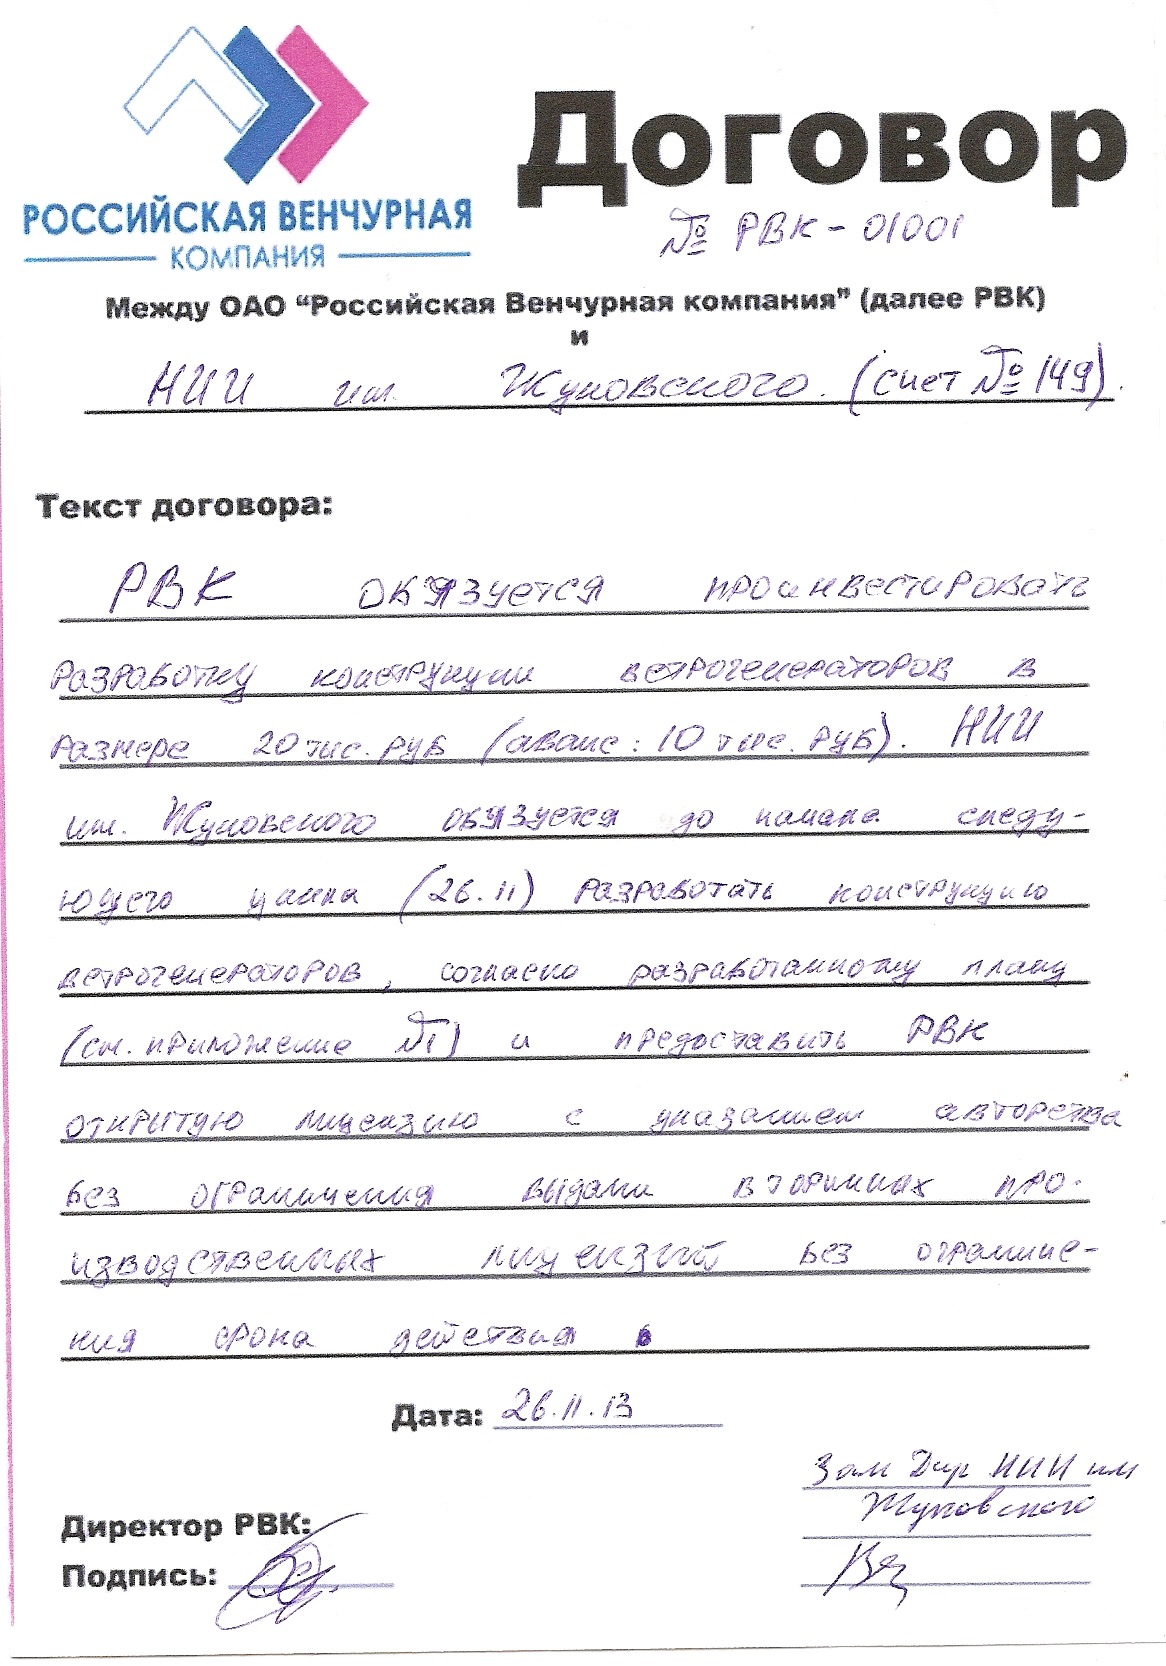 РОССИЙСКАЯ ВЕНЧУРНАЯ
КОМПАНИЯ
Договор
№ РВК - 01001
Между ОАО “Российская Венчурная компания” (далее РВК)
и
НИИ им. Жуковского. (счет № 149).
Текст договора:
РВК обязуется проинвестировать
разработку конструкции ветрогенераторов в
размере 20 тыс. руб (аванс: 10 тыс. руб). НИИ
им. Жуковского обязуется до начала следу-
ющего цикла (26.11) разработать конструкцию
ветрогенераторов, согласно разработанному плану
(см. приложение №1) и предоставить РВК
открытую лицензию с указанием авторства
без ограничения выдачи вторичных про-
изводственных лицензий без ограниче-
ния срока действия.
Дата: 26.11.13
Зам Дир НИИ им
Жуковского
Директор РВК:
Подпись: